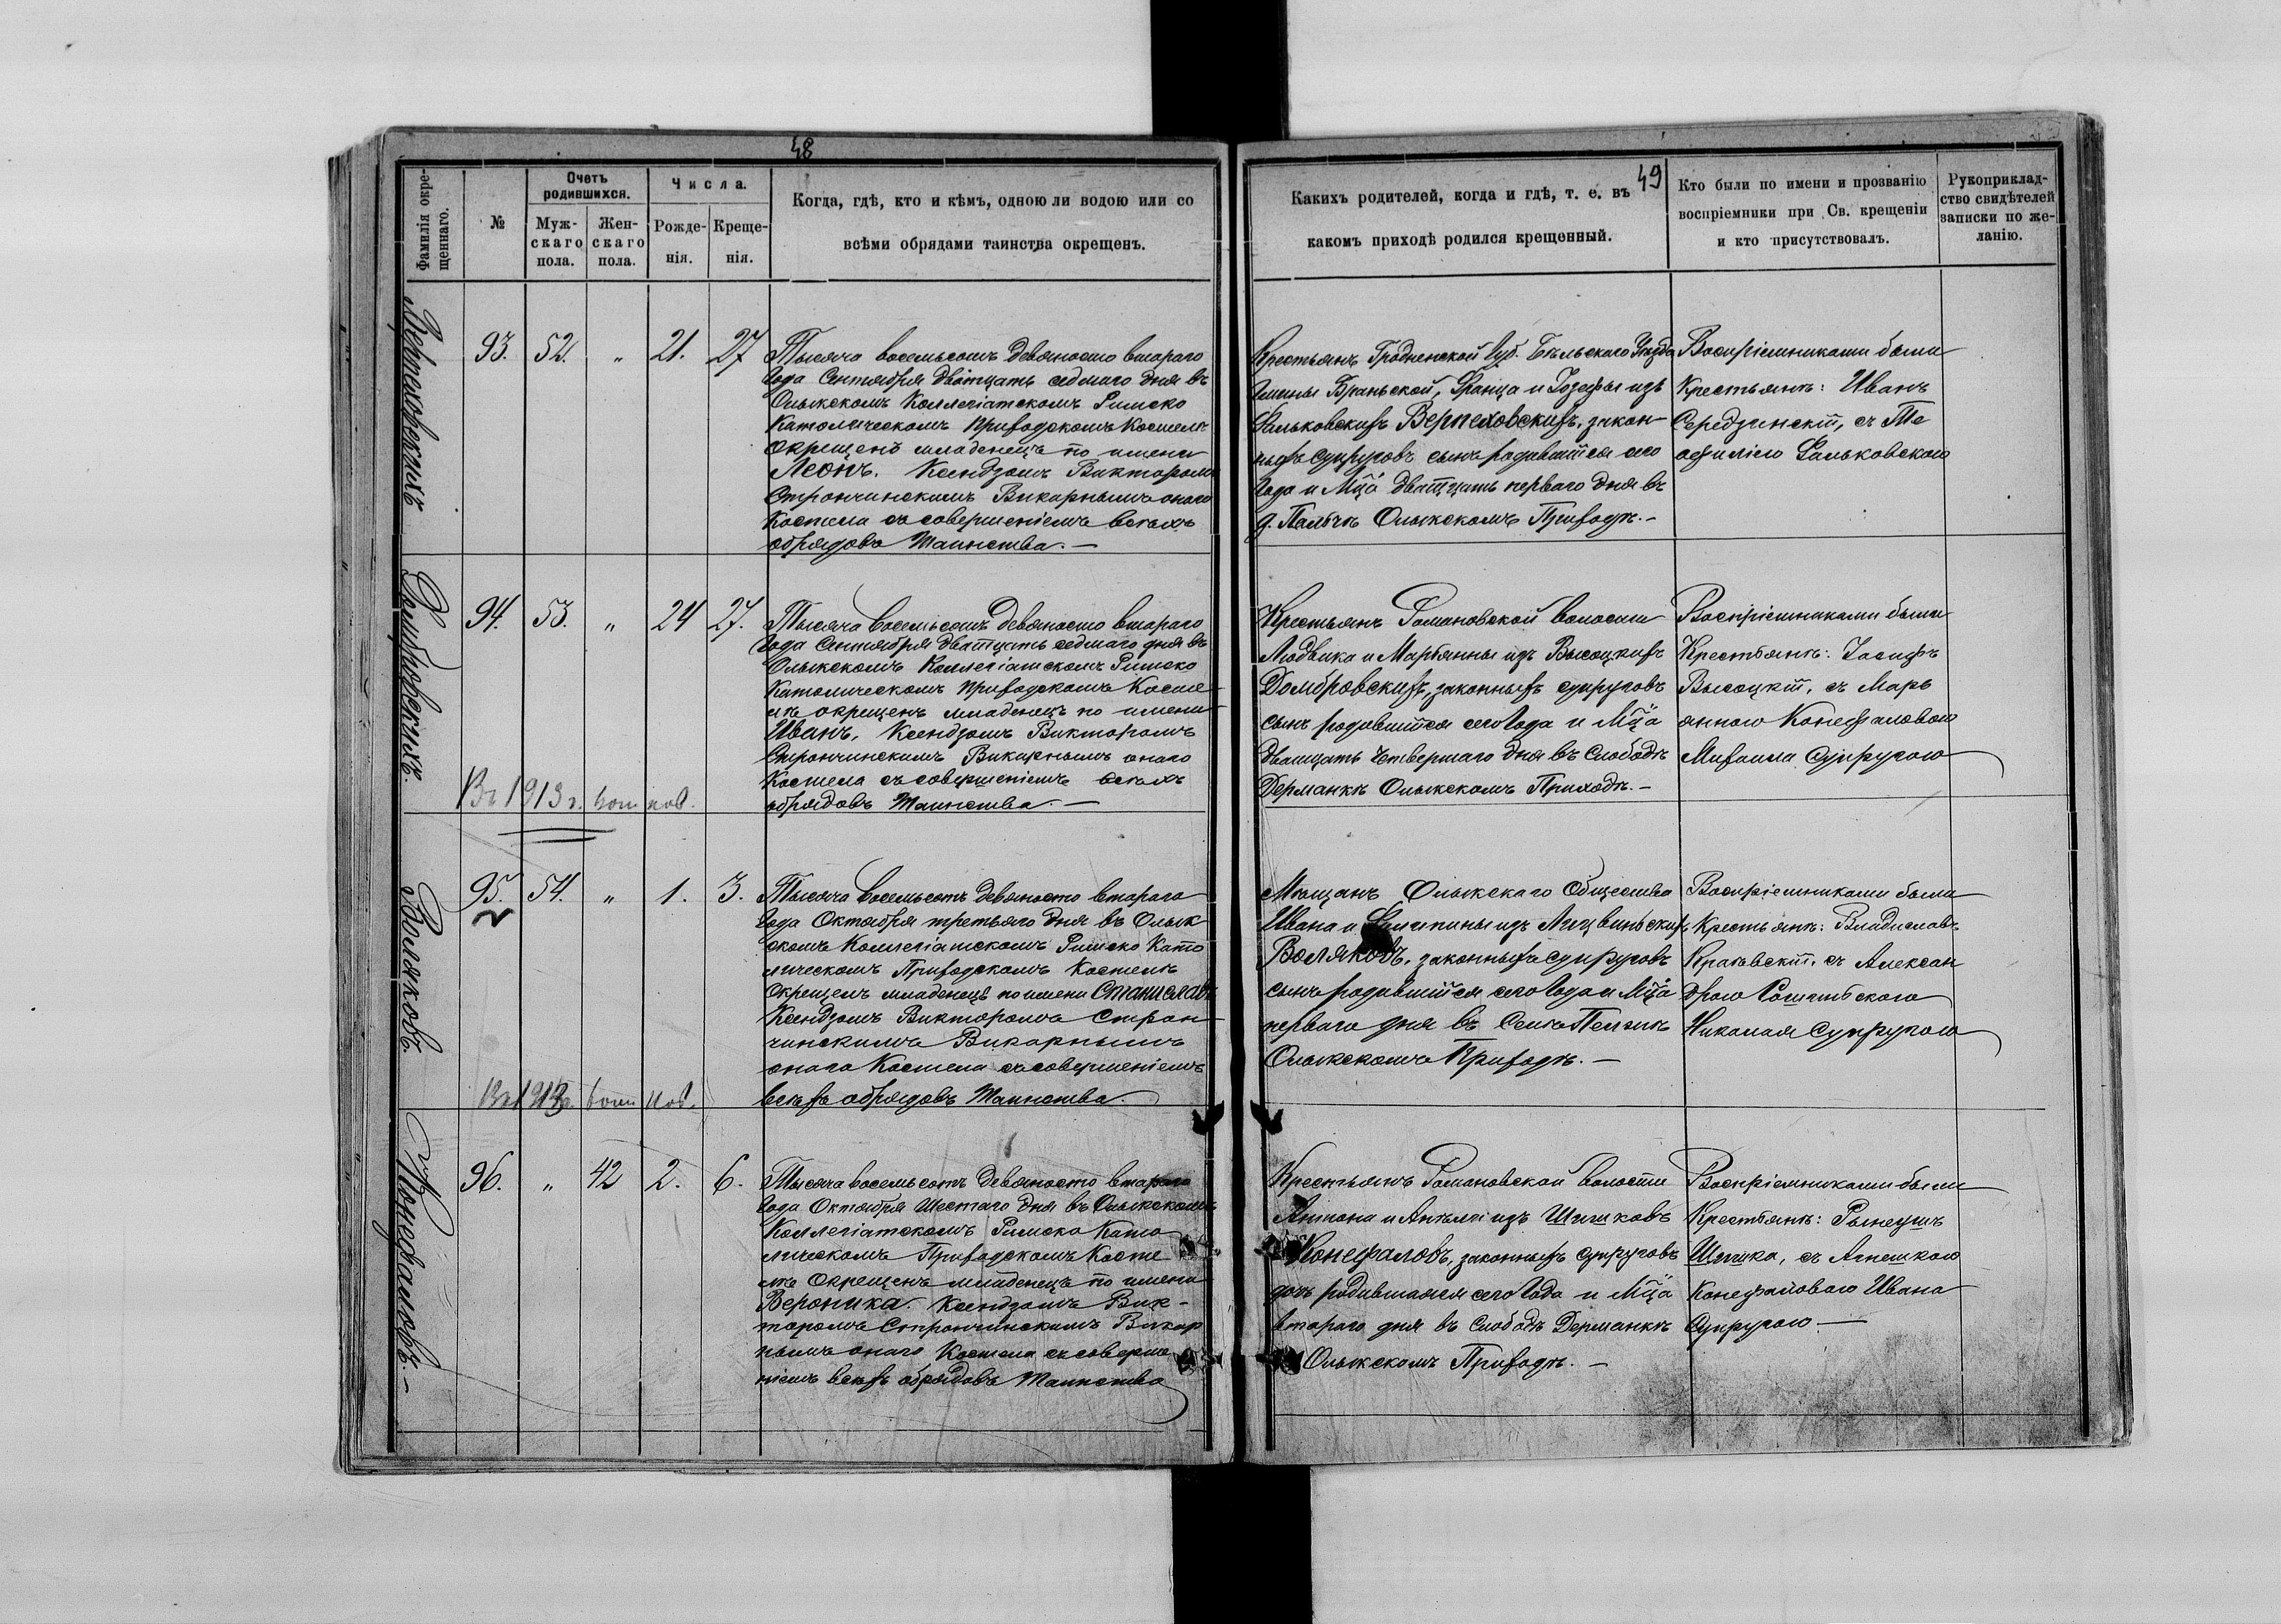 48
Фамилія окре-
щеннаго.
№
Очетъ
родившихся.
Муж-
скаго
пола.
Жен-
скаго
пола.
Числа.
Рожде-
нія.
Креще-
нія.
Когда, гдѣ, кто и кѣмъ, одною ли водою или со
всѣми обрядами таинства окрещенъ.
93. 52. " 21. 27
Тысяча восемьсотъ девяносто втараго
Года Сентября двадцать седмаго дня въ
Олыкскомъ Коллегіатскомъ Римско
Католическомъ Приходскомъ Костелѣ
окрещенъ младенецъ по имени
Леонъ. Ксендзомъ Викторомъ
Стрончинскимъ Викарнымъ онаго
Костела съ совершеніемъ всѣхъ
обрядовъ Таинства. —
Домбровскихъ.
94. 53. " 24 27.
Тысяча восемьсотъ девяносто втараго
Года Сентября двадцать седмаго дня въ
Олыкскомъ Коллегіатскомъ Римско
Католическомъ Приходскомъ Косте
лѣ окрещенъ младенецъ по имени
Иванъ. Ксендзомъ Викторомъ
Стрончинскимъ Викарнымъ онаго
Костела съ совершеніемъ всѣхъ
обрядовъ Таинства. —
Въ 1913 г.
Воляковъ.
95. 54. " 1. 3.
Тысяча восемьсотъ девяносто втараго
Года Октября третьяго дня въ Олык
скомъ Коллегіатскомъ Римско Като
лическомъ Приходскомъ Костелѣ
окрещенъ младенецъ по имени Станиславъ
Ксендзомъ Викторомъ Строн
чинскимъ Викарнымъ
онаго Костела съ совершеніемъ
всѣхъ обрядовъ Таинства.
Конефаловъ. —
96. " 42 2. 6.
Тысяча восемьсотъ девяносто втараго
Года Октября Шестаго дня въ Олыкскомъ
Коллегіатскомъ Римско Като
лическомъ Приходскомъ Косте
лѣ окрещенъ младенецъ по имени
Вероника. Ксендзомъ Вик-
торомъ Стрончинскимъ Викар
нымъ онаго Костела съ соверше
ніемъ всѣхъ обрядовъ Таинства
49
Какихъ родителей, когда и гдѣ, т. е. въ
какомъ приходѣ родился крещенный.
Кто были по имени и прозванію
воспріемники при Св. крещеніи
и кто присутствовалъ.
Рукоприклад-
ство свидѣтелей
записки по же-
ланію.
Крестьянъ Гродненской Губ. Бѣльскаго Уѣзда
Гмины Браньской, Франца и Іозефы изъ
Верпеховскихъ, закон-
ныхъ супруговъ сынъ родившійся сего
Года и Мца двадцать перваго дня въ
Олыкскомъ Приходѣ. —
Воспріемниками были
Крестьянъ: Иванъ
съ Те
офилію
Крестьянъ Романовской волости
Людвика и Марьянны изъ Высоцкихъ
Домбровскихъ, законныхъ супруговъ
сынъ родившійся сего Года и Мца
двадцать четвертаго дня въ Слободѣ
Дерманкѣ Олыкскомъ Приходѣ. —
Воспріемниками были
Крестьянъ: Іосифъ
Высоцкій, съ Марь
анною Конефаловою
Михаила супругою
Мѣщанъ Олыкскаго Общества
Ивана и
Воляковъ, законныхъ супруговъ
сынъ родившійся сего Года и Мца
перваго дня въ
Олыкскомъ Приходѣ. —
Воспріемниками были
Крестьянъ: Владиславъ
съ Алексан
дрою
Николая супругою
Крестьянъ Романовской волости
Антона и Анѣли изъ Шишковъ
Конефаловъ, законныхъ супруговъ
дочь родившаяся сего Года и Мца
втораго дня въ Слободѣ Дерманкѣ
Олыкскомъ Приходѣ. —
Воспріемниками были
Крестьянъ:
Шишка, съ Агнешкою
Конефаловаю Ивана
Супругою —